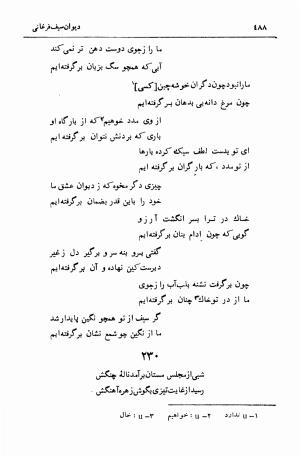 ۴۸۸
دیوان سیف فرغانی
ما را زجوی دوست دهن تر نمی‌کند
آبی که همچو سگ بزبان برگرفته‌ایم
ما را نبود چون دگران خوشه‌چین [کسی]۱
چون مرغ دانه‌یی بدهان برگرفته‌ایم
از وی مدد خوهیم۲ که از بارگاه او
باری که بردنش نتوان برگرفته‌ایم
ای تو بدست لطف سبک کرده بارها
از تو مدد، که بار گران برگرفته‌ایم
چیزی دگر مخوه که ز دیوان عشق ما
خود را باین قدر بضمان برگرفته‌ایم
خاک در ترا بسر انگشت آرزو
گویی که چون ادام بنان برگرفته‌ایم
گفتی برو بنه سر و برگیر دل ز غیر
دیرست کین نهاده و آن برگرفته‌ایم
چون برگرفت تشنه بلب آب را زجوی
ما از در تو خاک۳ چنان برگرفته‌ایم
گر سیف از تو همچو نگین پایدار شد
ما از نگین چو شمع نشان برگرفته‌ایم
۲۳۰
شبی از مجلس مستان برآمد نالهٔ چنگش
رسید از غایت تیزی بگوش زهره آهنگش
۱- ۱۱ ندارد ۲- ۱۱: خواهیم ۳- ۱۱: خال